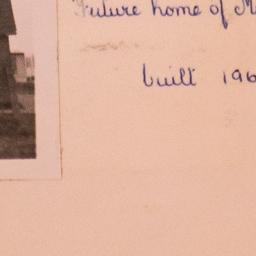 Future home of M
built 196